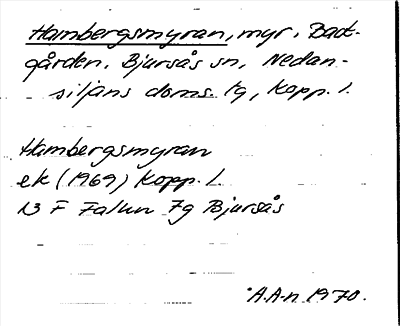 Hambergsmyran, myr, Bäck-
gården, Bjursås sn, Nedan-
siljans doms. tg, Kopp. l.
Hambergsmyran
ek (1969) Kopp. l.
13 F Falun 7g Bjursås
A.A-n 1970.